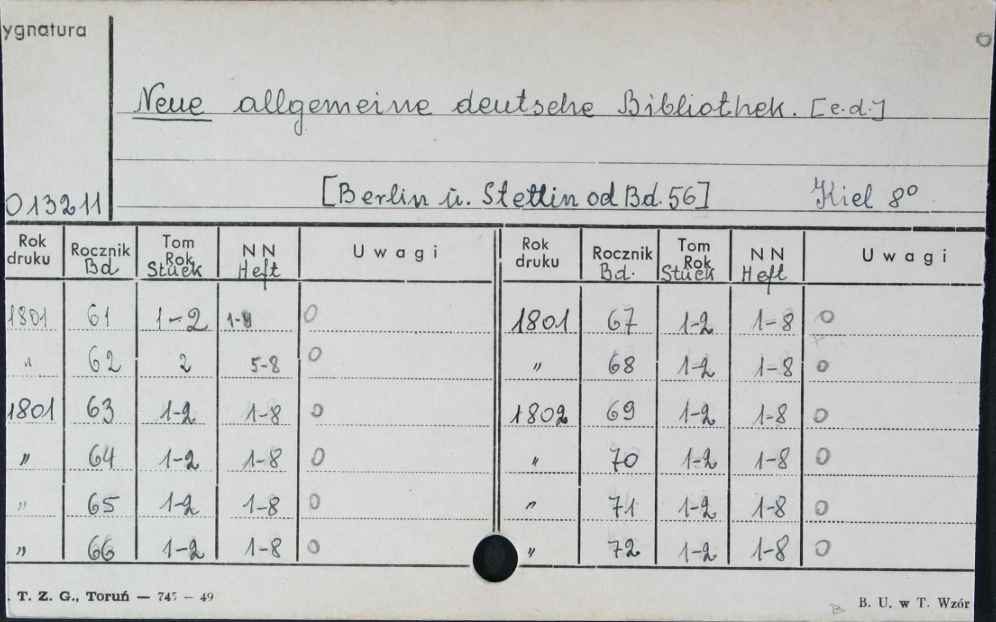 ygnatura
Neue allgemeine deutsche Bibliothek. [e.d.]
[Berlin u. Stettin od Bd. 56] Kiel 8°
013211
Rok druku Rocznik Bd Tom Rok Stück NN Heft Uwagi Rok druku Rocznik Bd. Tom Rok Stück NN Heft Uwagi
1801 61 1-2 1-8 O 1801 67 1-2 1-8 O
" 62 2 5-8 O " 68 1-2 1-8 O
1801 63 1-2 1-8 O 1802 69 1-2 1-8 O
" 64 1-2 1-8 O " 70 1-2 1-8 O
" 65 1-2 1-8 O " 71 1-2 1-8 O
" 66 1-2 1-8 O " 72 1-2 1-8 O
. T. Z. G., Toruń — 745 — 49 B. U. w T. Wzór